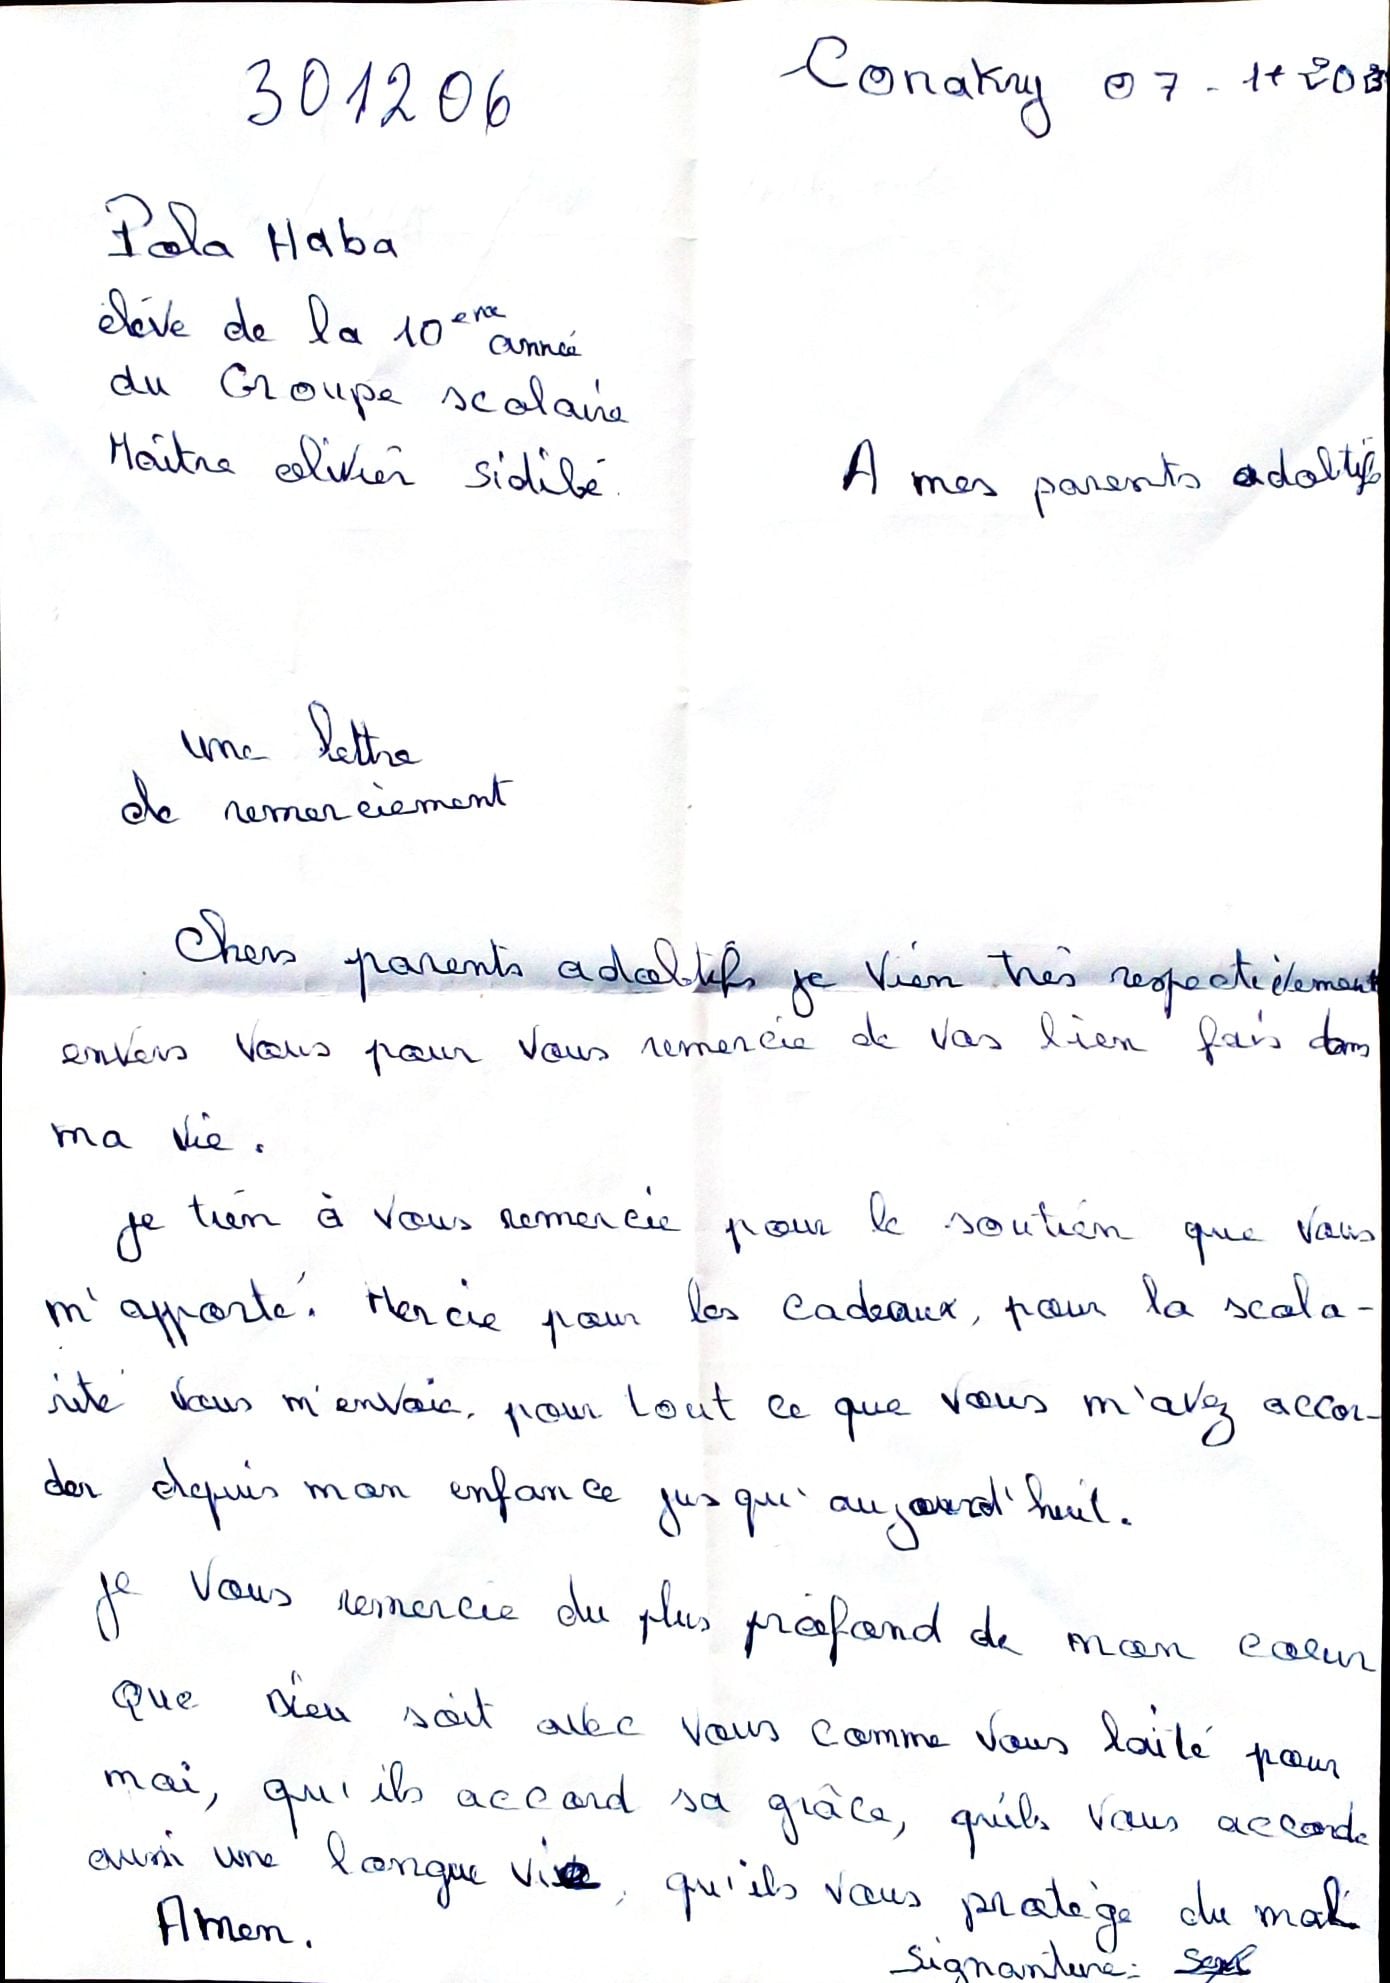 301206
Conakry 07 - 11 202
Pola Haba
élève de la 10ere année
du Groupe scolaire
Maître olivier sidibé.
A mes parents adoltifs
une lettre
de remerciement
Chers parents adoltifs je vien très respectièlement
envers vous pour vous remercie de vos bien fais dans
ma vie.
je tien à vous remercie pour le soutien que vous
m'apporté. Mercie pour les cadeaux, pour la scola-
rité vous m'envoie, pour tout ce que vous m'avez accor-
der depuis mon enfance jusqu'aujourd'huit.
je vous remercie du plus profond de mon coeur
que Dieu soit avec vous comme vous laité pour
moi, qu'ils accord sa grâce, qu'ils vous accorde
aussi une longue vie, qu'ils vous protège du mal
Amen.
Signanture: